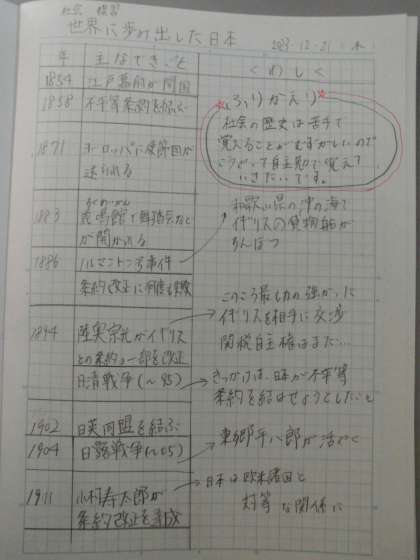 社会 復習
世界に歩み出した日本
2023.12.21 木
年 主なできごと
くわしく
1854 江戸幕府が開国
1858 不平等条約を結ぶ
1871 ヨーロッパに使節団が
送られる
1883 鹿鳴館で舞踏会など
ろくめいかん
が開かれる
1886 ノルマントン号事件
条約改正に何度も失敗
1894 陸奥宗光がイギリス
との条約の一部を改正
日清戦争(~95)
1902 日英同盟を結ぶ
1904 日露戦争(~05)
1911 小村寿太郎が
条約改正を達成
ふりかえり
社会の歴史は苦手で
覚えることがむずかしいので
こうやって自主勉で覚えて
いきたいです。
和歌山県の沖の海で
イギリスの貨物船が
ちんぼつ
このころ最も力の強かった
イギリスを相手に交渉
関税自主権はまだ…
きっかけは、日本が不平等
条約を結ばせようとしたこと
東郷平八郎が活やく
日本は欧米諸国と
対等な関係に